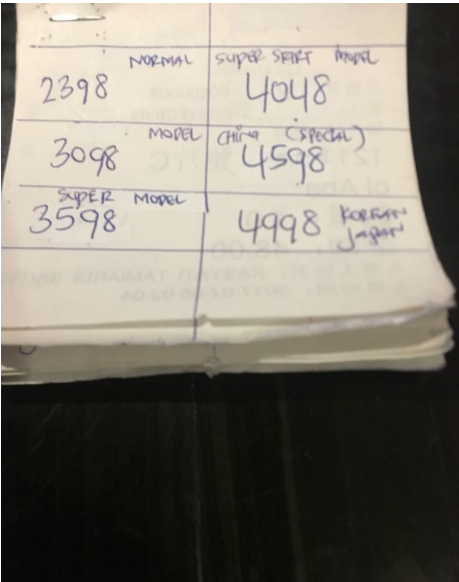 NORMAL
2398
SUPER SPIRT MODEL
4048
MODEL
3098
CHINA (SPECIAL)
4598
SUPER MODEL
3598
4998 KOREAN
JAPAN